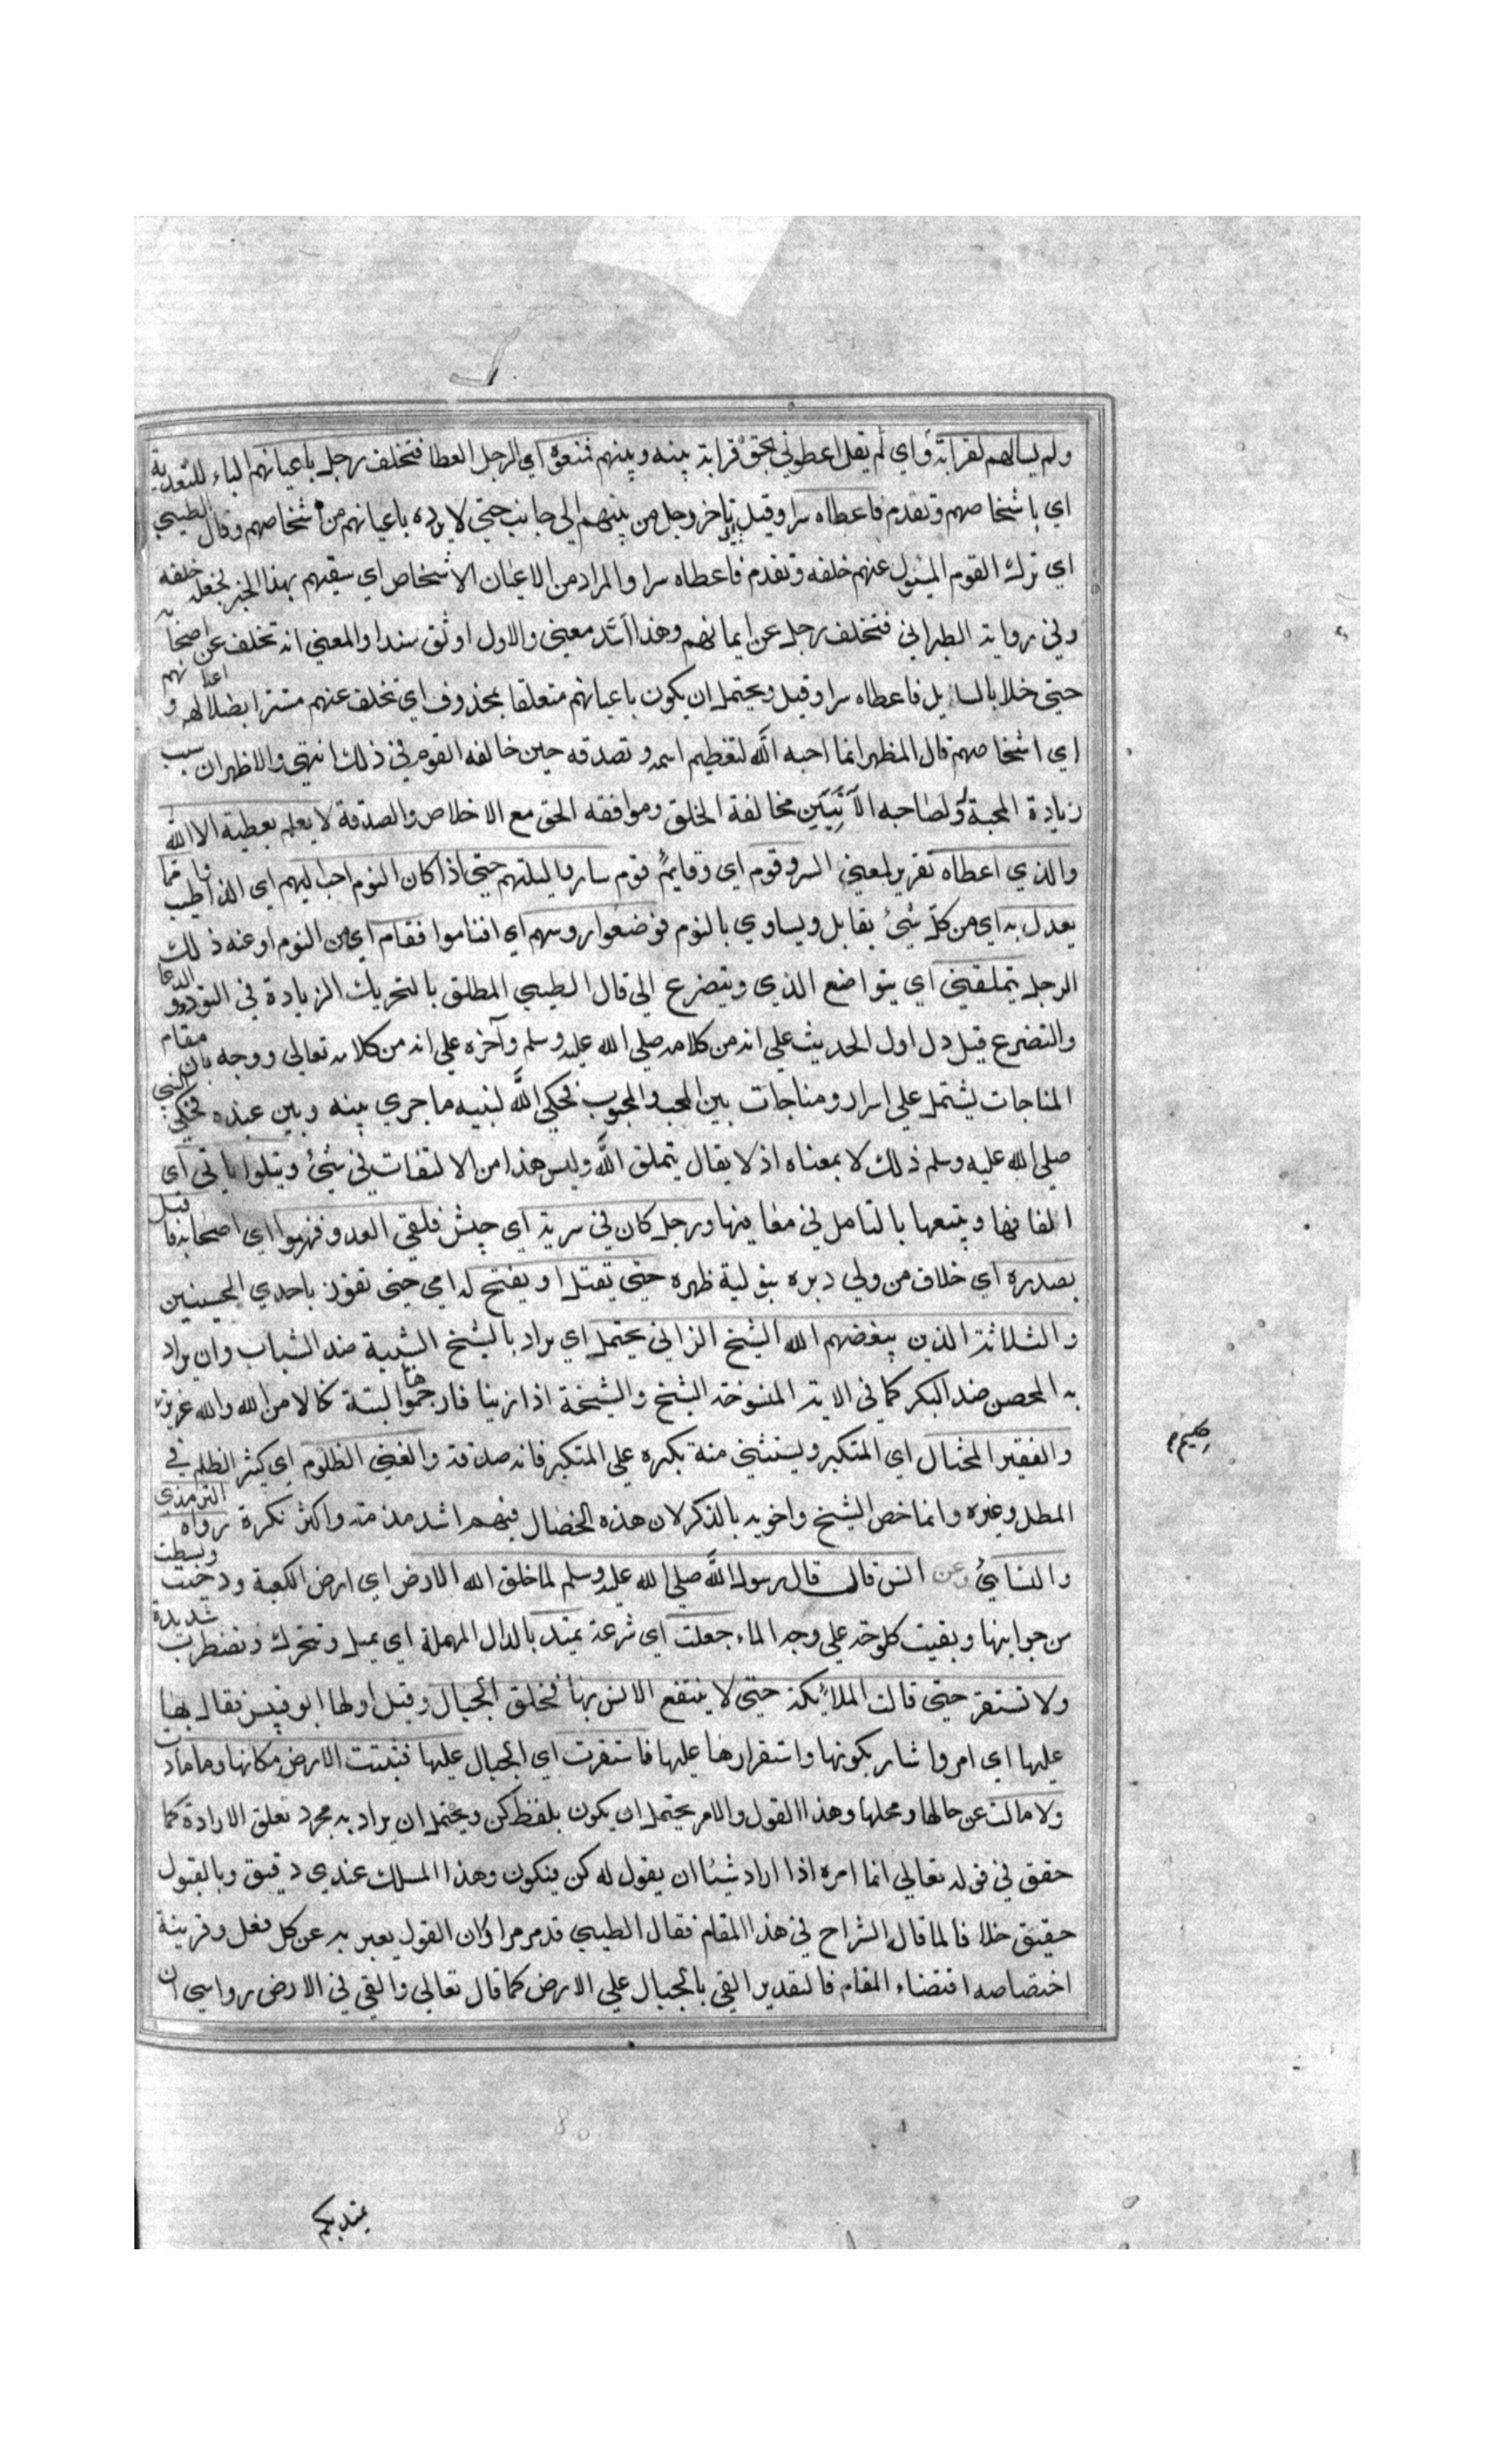 ولم يسالهم لقرابة واي لم يقل اعطوني بحق قرابة بينه وبينهم فمنعوه اي الرجل العطا فتخلف رجل باعيانهم الباء للتعدية
اي باشخاصهم وتقدم فاعطاه سرا وقيل تاخر رجل من بينهم الي جانب حتي لا يرده باعيانهم من اشخاصهم وقال الطيبي
اي ترك القوم المسئول عنهم خلفه وتقدم فاعطاه سرا والمراد من الاعيان الاشخاص اي سبقهم بهذا الخير فجعلهم خلفه
وفي رواية الطبراني فتخلف رجل عن ايمانهم وهذا اشد معني والاول اوثق سندا والمعني انه تخلف عن اصحابه
حتي خلا بالسايل فاعطاه سرا وقيل ويحتمل ان يكون باعيانهم متعلقا بمحذوف اي تخلف عنهم مستترا بضلالهم و اعيانهم
اي اشخاصهم قال المظهر انما احبه الله لتعظيم اسمه وتصدقه حين خالفه القوم في ذلك انتهي والاظهر ان سبب
زيادة المحبة لصاحبه الاتيين مخالفة الخلق وموافقه الحق مع الاخلاص والصدقة لا يعلم بعطيته الا الله
والذي اعطاه تقرير لمعني السر وقوم اي وقايم قوم ساروا ليلتهم حتي اذا كان النوم احب اليهم اي الذ واطيب مما
يعدل به اي من كل شيئ يقابل ويساوي بالنوم فوضعوا روسهم اي افناموا فقام اي من النوم او عنه ذلك
الرجل يتملقني اي يتواضع الذي ويتضرع الي قال الطيبي المطلق بالتحريك الزيادة في التودد والدعا
والتضرع قيل دل اول الحديث علي انه من كلامه صلي الله عليه وسلم وآخره علي انه من كلامه تعالي ووجه بان مقام
المناجات يشتمل علي اسرار ومناجات بين المحب والمحبوب فحكي الله لنبيه ما جري بينه وبين عبده فحكي النبي
صلي الله عليه وسلم ذلك لا بمعناه اذ لا يقال يتملق الله وليس هذا من الالتفات في شيئ ويتلوا اياتي اي
الفاظها ويتبعها بالتامل في معانيها ورجل كان في سرية اي جيش فلقي العدو فهزموا اي اصحابه فاقبل
بصدره اي خلاف من ولي دبره بتولية ظهره حتي يقتل او يفتح له امي حتي تفوز باحدي الحسنيين
والثلاثة الذين يبغضهم الله الشيخ الزاني يحتمل اي يراد بالشيخ الشيبة ضد الشباب وان يراد
به المحصن ضد البكر كما في الاية المنسوخة الشيخ والشيخة اذا زينا فارجموهما البتة نكالا من الله والله عزيز
حكيم
والفقير المختال اي المتكبر ويستثني منه تكبره علي المتكبر فانه صدقة والغني الظلوم اي كثير الظلم في
المطل وغيره وانما خص الشيخ واخويه بالذكر لان هذه الخصال فيهم اشد مذمة واكثر نكرة رواه الترمذي
والنسائي وعن انس قال قال رسول الله صلي الله عليه وسلم لما خلق الله الارض اي ارض الكعبة ودحيت وبسطت
من جوابنها وبقيت كلوحة علي وجه الماء جعلت اي شرعة يميد بالدال المهملة اي يميل وتتحرك وتضطرب شديدة
ولا تستقر حتي قالت الملائكة حتي لا ينتفع الانس بها فخلق الجبال وقيل اولها ابو قبيس فقال بها
عليها اي امر واشار بكونها واستقرارها عليها فاستقرت اي الجبال عليها فثبتت الارض مكانها وما مادت
ولا مالت عن حالها ومحلها وهذا القول والامر يحتمل ان يكون بلفظ كن ويحتمل ان يراد به مجرد تعلق الارادة كما
حقق في قوله تعالي انما امره اذا اراد شيئا ان يقول له كن فيكون وهذا المسلك عندي دقيق وبالقبول
حقيق خلافا لما قال الشراح في هذا المقام فقال الطيبي قد مر مرا وان القول يعبر به عن كل فعل وقرينة
اختصاصه اقتضاء المقام فالتقدير القي بالجبال علي الارض كما قال تعالي والقي في الارض رواسي ان
تميد بكم